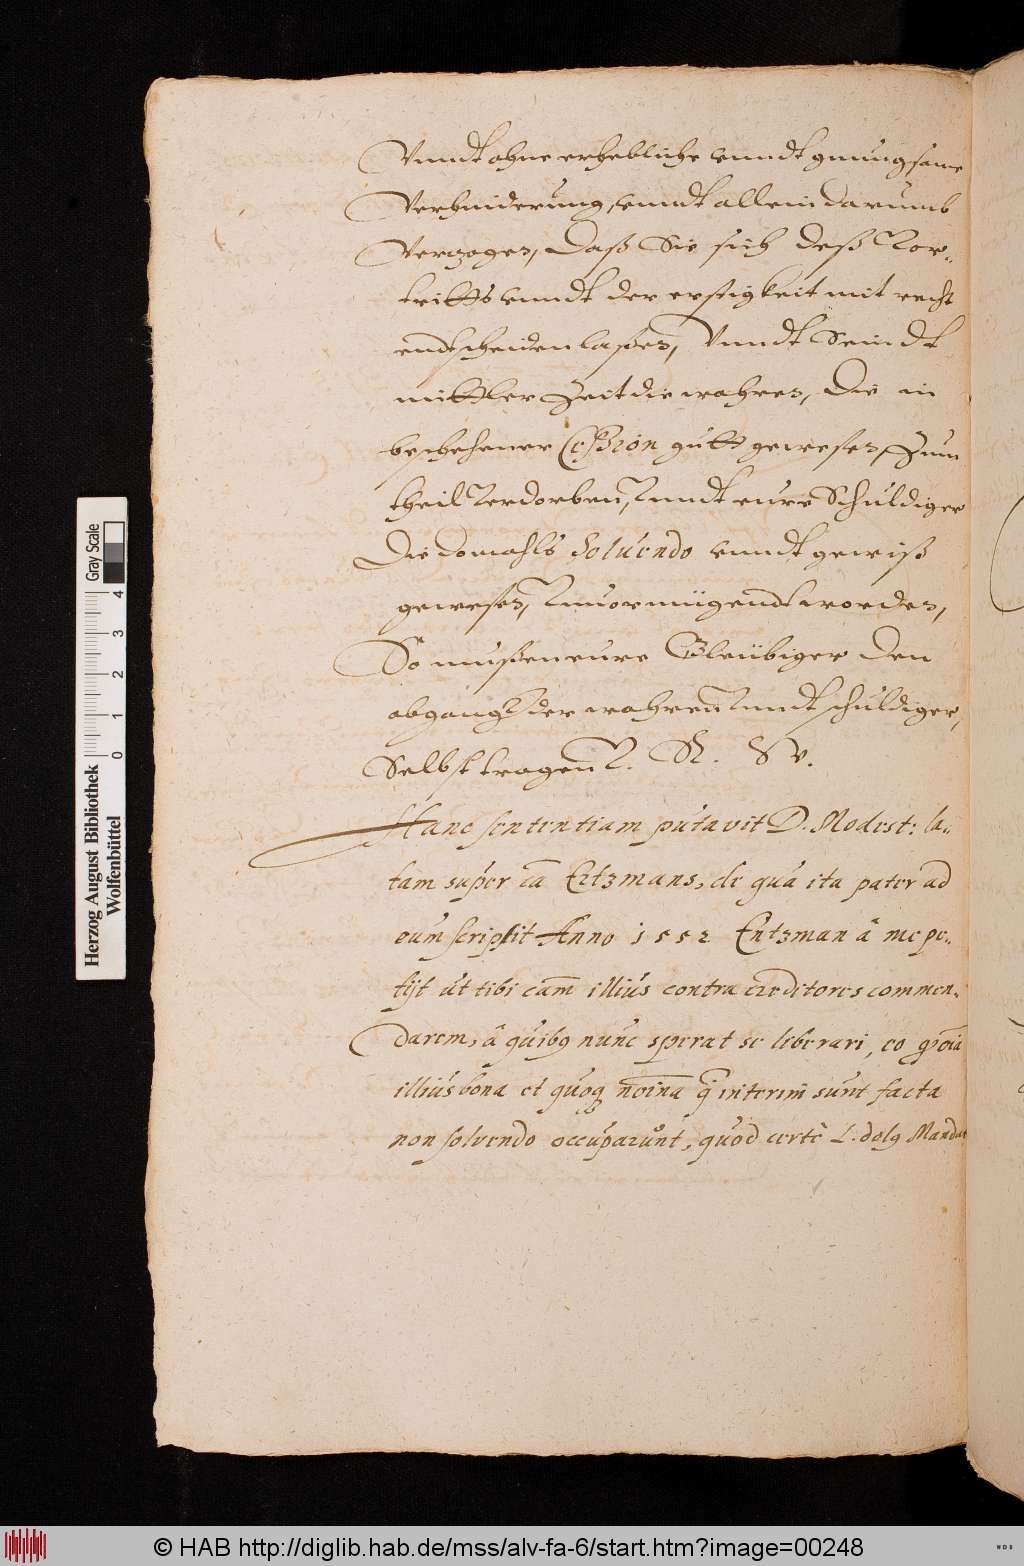 Vnndt ohne erhebliche vnndt gnungsame
Verhinderung, vnndt allein darumb
Verzogen, Daß Sie sich deß Vor„
tritts vnndt der erstigkeit mit recht
endtscheiden laßen, Vnndt Seindt
mittler Zeit die wahren, Die in
beschehener Cession gutt gewesen, Zum
theil Verdorben, Vnndt eure Schuldiger
Die domahls Soluendo vnndt gewiß
gewesen, Vnuormügendt worden,
So mußen eure Gleubiger den
abgangk der wahren Vnndt schuldiger,
Selbst tragen V. R. W.
Hanc sententiam putavit D. Modest: la„
tam super cã Entzmans, de qua ita pater ad
eum scripsit Anno 1552 Entzman â me pe„
tijt ut tibi cãm illius contra creditores commen„
darem, â quibq nunc sperat se liberari, eo
illius bona et quoq noĩna q̃ interim sunt facta
non solvendo occuparũnt, quod certè L. dolq Mandat
Herzog August Bibliothek
Wolfenbüttel
0 1 2 3 4
Gray Scale
© HAB http://diglib.hab.de/mss/alv-fa-6/start.htm?image=00248
WDB